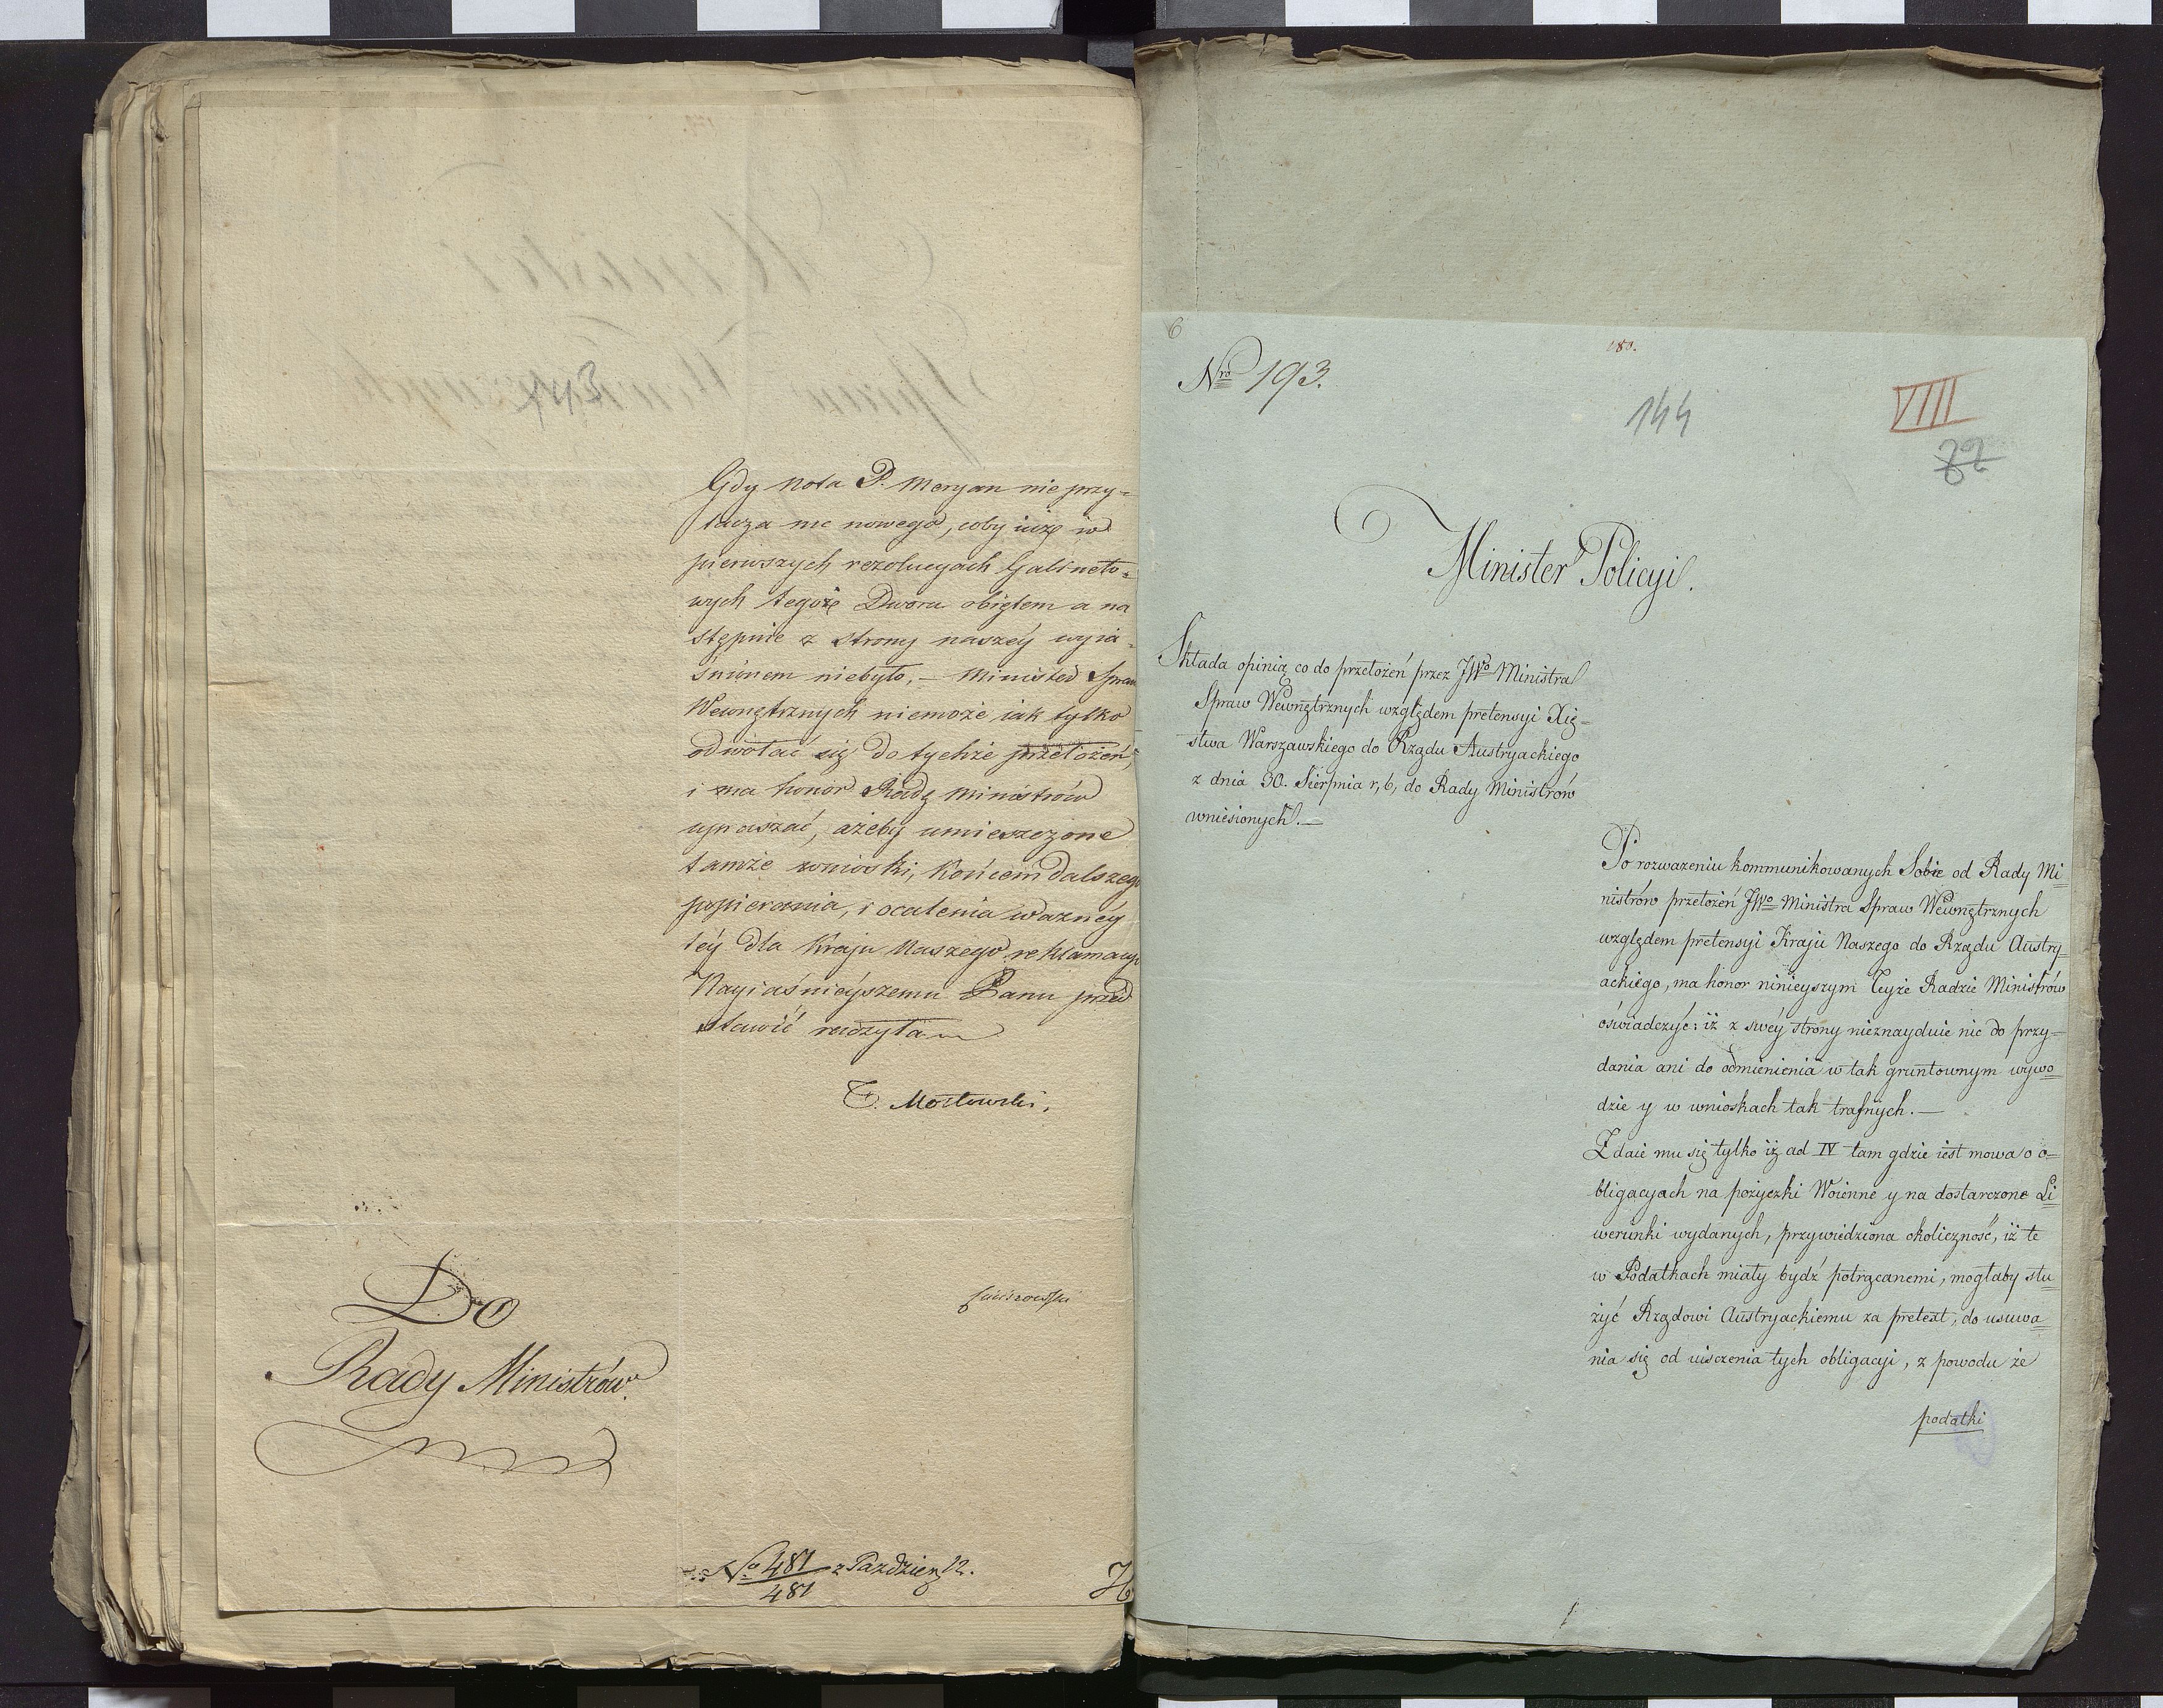 Gdy Nota P. Meryan nie przy=
tacza nic nowego, coby iuż w
pierwszych rezolucyach Gabineto=
wych tegoż Dworu obiętem a na
stępnie z strony naszéy wyia=
śnionem niebyło, – Minister Spraw
Wewnętrznych niemoże iak tylko
odwołać się do tychże przełożeń,
i ma honor Radę Ministrów
upraszać, ażeby umieszczone
tamże wnioski, końcem dalszego
popierania, i ocalenia ważnéy
téy dla Kraju Naszego reklamacyi
Nayiaśnieyszemu Panu przed
stawić raczyła
T. Mostowski.
Do
Rady Ministrów.
No 481 z Paździer 12.
481
6
180.
Nro 193.
144
VIII
72
Minister Policyi.
Składa opinią co do przełożeń przez JWo Ministra
Spraw Wewnętrznych względem pretensyi Xię=
stwa Warszawskiego do Rządu Austryackiego
z dnia 30. Sierpnia r, b, do Rady Ministrów
wniesionych. –
Po rozważeniu kommunikowanych Sobie od Rady Mi=
nistrów przełożeń JWo Ministra Spraw Wewnętrznych
względem pretensyi Kraju Naszego do Rządu Austry=
ackiego, ma honor ninieyszym Teyże Radzie Ministrów
oświadczyć: iż z swéy strony nieznayduie nic do przy=
dania ani do odmienienia w tak gruntownym wywo=
dzie y w wnioskach tak trafnych. –
Zdaie mu się tylko iż ad IV tam gdzie iest mowa o o=
bligacyach na pożyczki Woienne y na dostarczone Li=
werunki wydanych, przywiedziona okoliczność, iż te
w Podatkach miały bydź potrącanemi, mogłaby słu
żyć Rządowi Austryackiemu za pretext, do usuwa=
nia się od uisczenia tych obligacyi, z powodu że
podatki